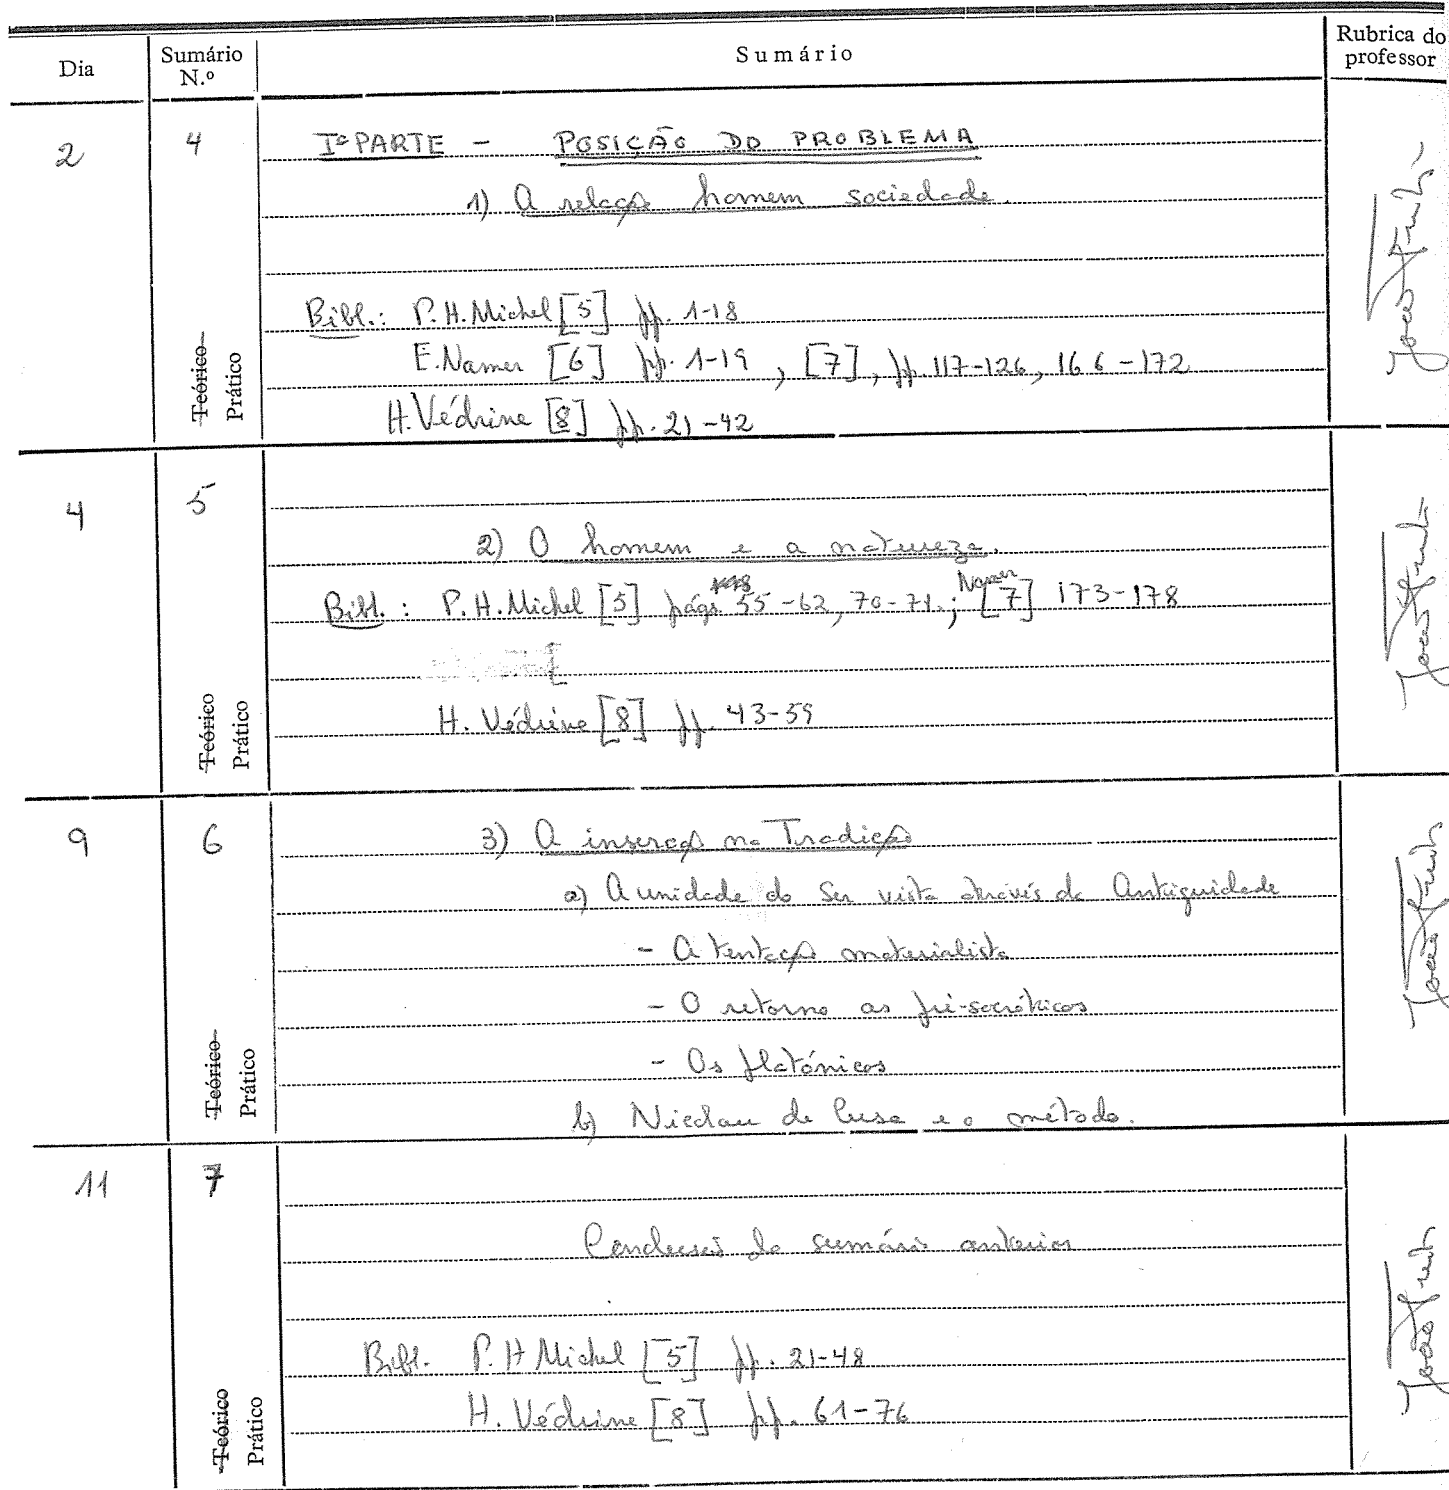 Dia Sumário N.º Sumário Rubrica do professor
2 4 Iª PARTE - POSIÇÃO DO PROBLEMA
1) A relação homem sociedade.
Bibl.: P.H.Michel [5] pp. 1-18
E.Namer [6] pp. 1-19, [7], pp. 117-126, 166-172
H.Védrine [8] pp. 21-42
Teórico
Prático
João
4 5
2) O homem e a natureza.
Bibl.: P.H.Michel [5] págs. 55-62, 70-71.; Namer [7] 173-178
H. Védrine [8] pp. 43-59
Teórico
Prático
João
9 6 3) A inserção na Tradição
a) A unidade do Ser vista através da Antiguidade
- A tentação materialista
- O retorno aos pré-socráticos
- Os platónicos
b) Nicolau de Cusa e o método.
Teórico
Prático
João
11 7
Conclusão do sumário anterior
Bibl. P.H Michel [5] pp. 21-48
H. Védrine [8] pp. 61-76
Teórico
Prático
João